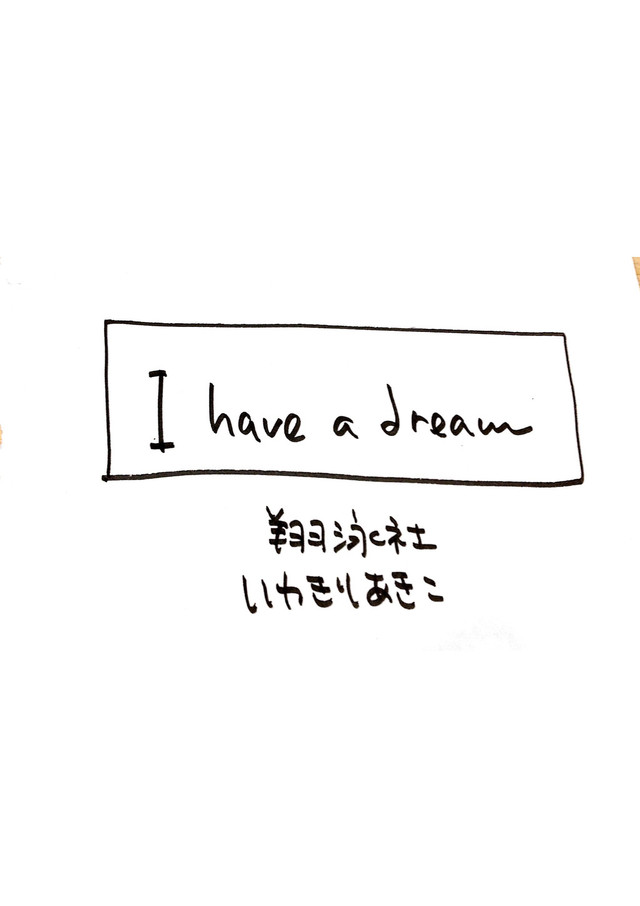 I have a dream
翔泳社
いわきりあきこ